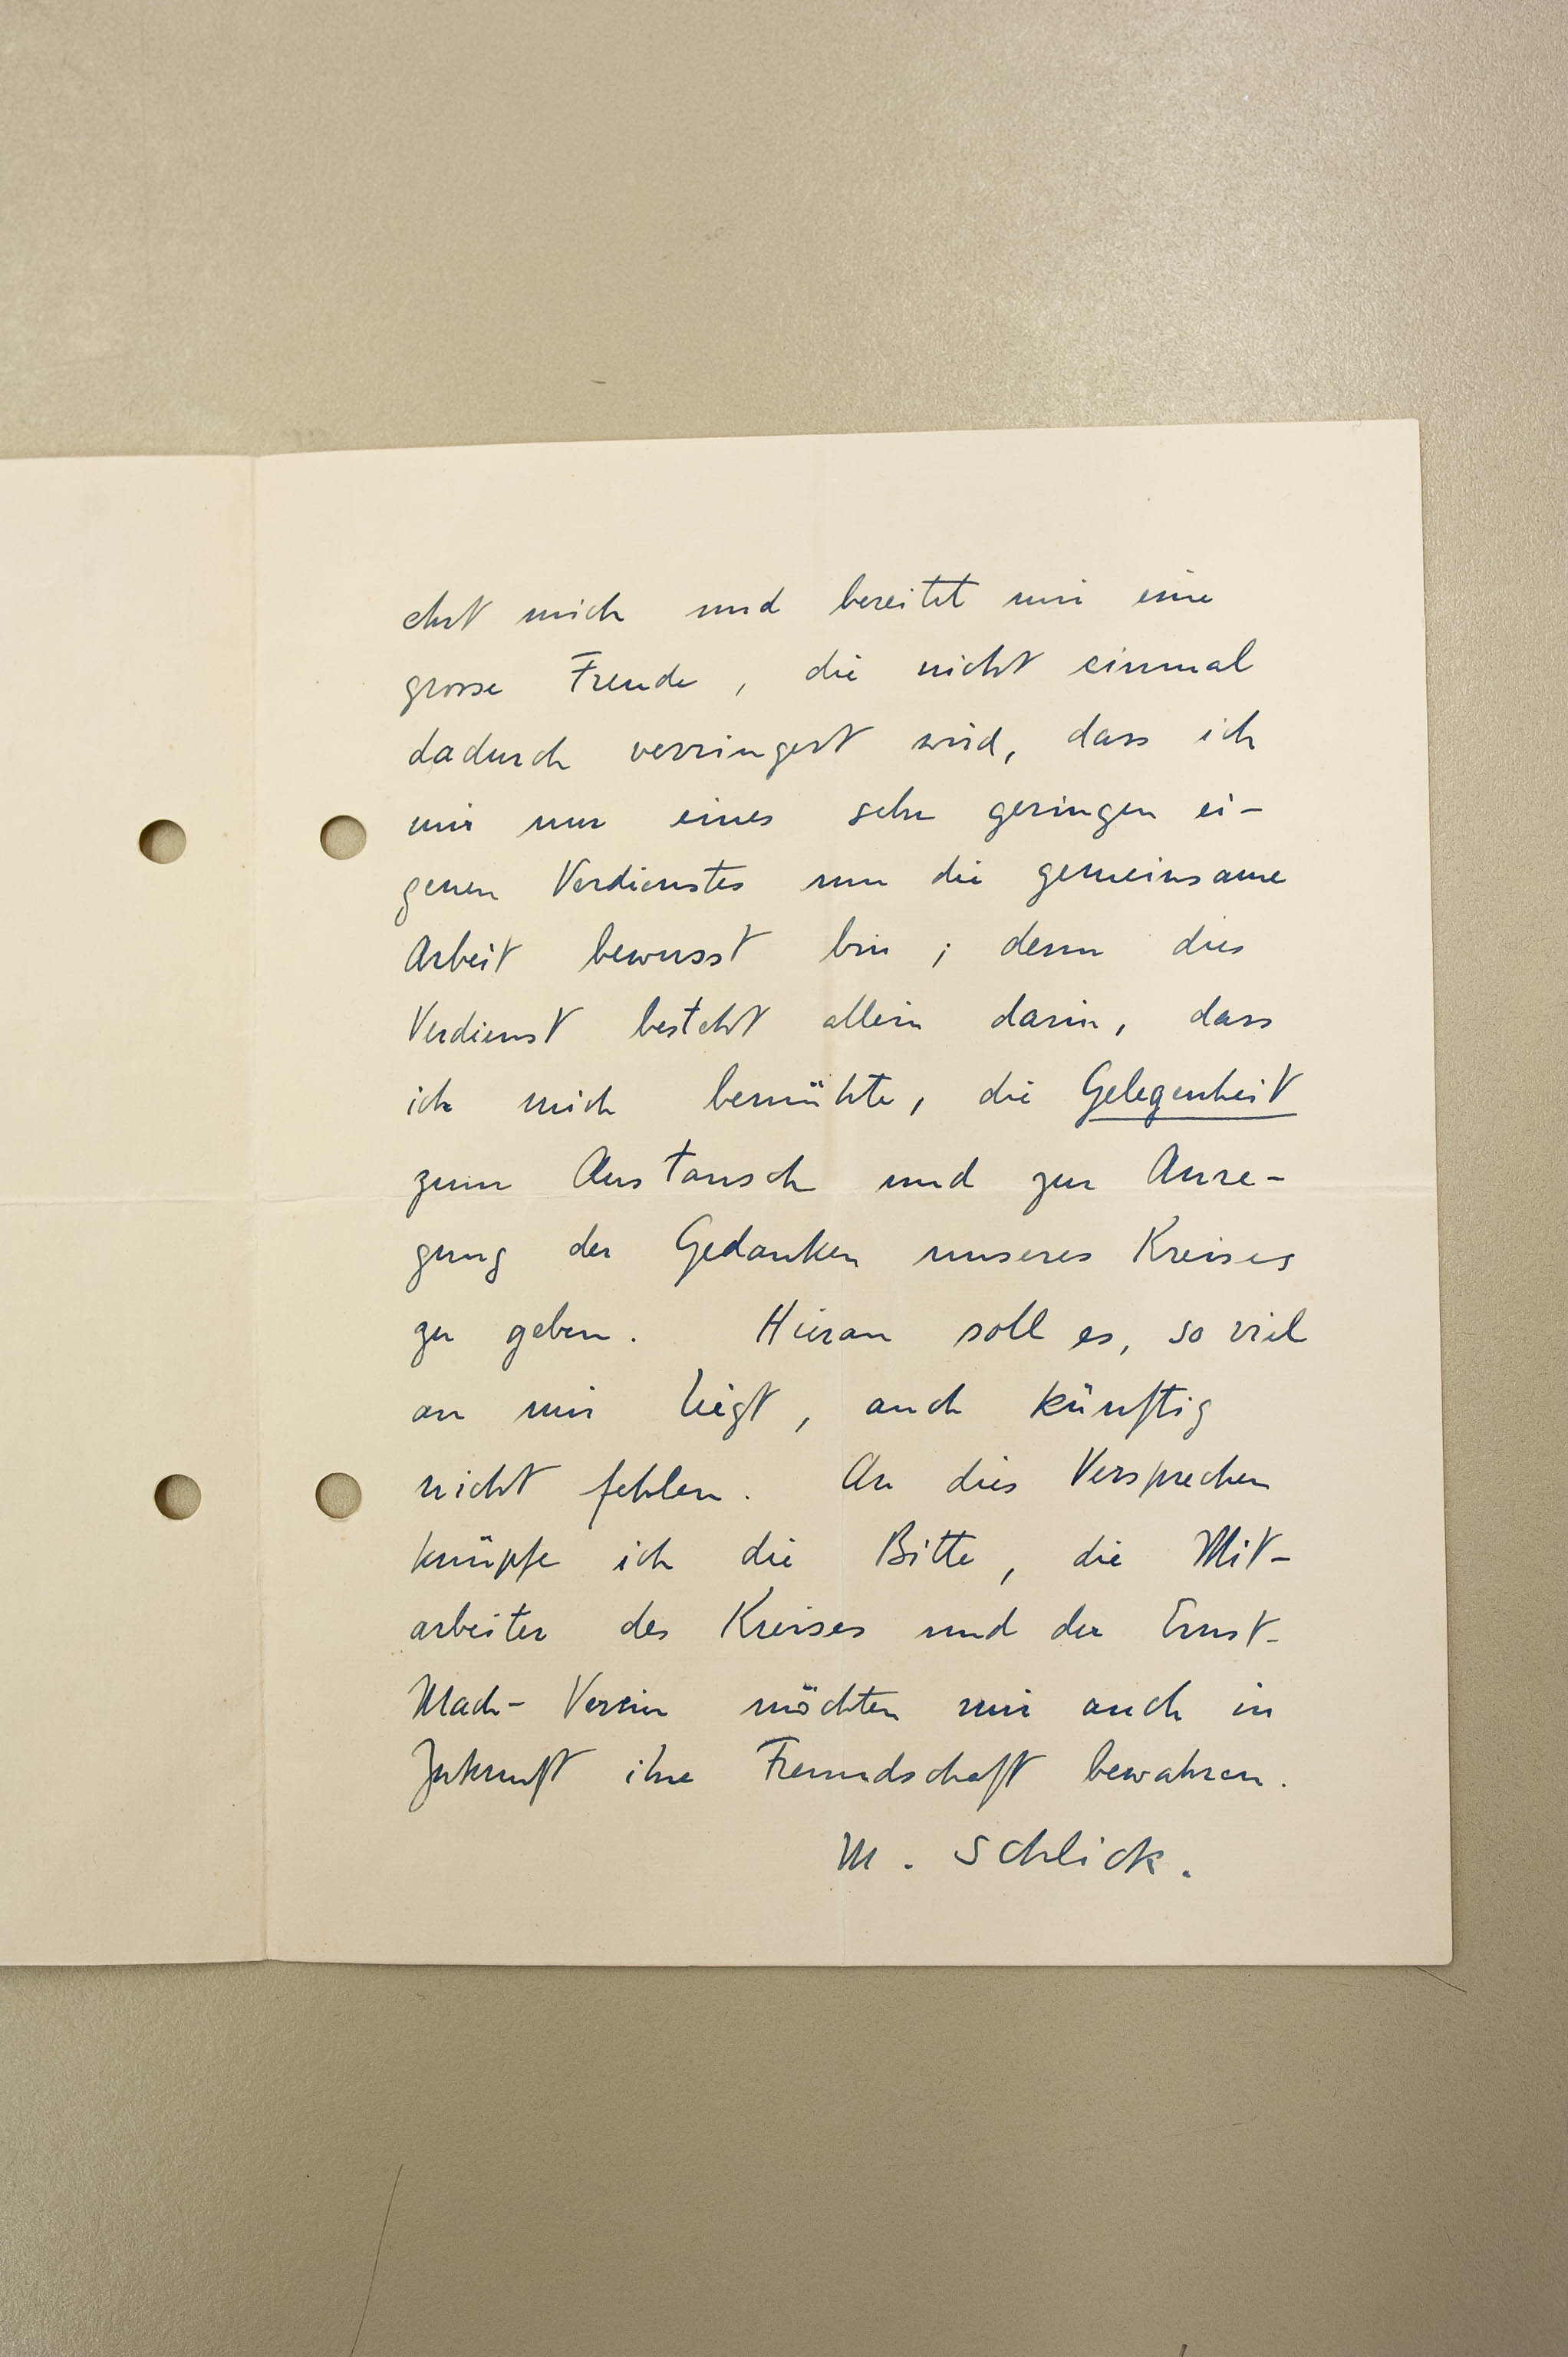 ehrt mich und bereitet mir eine
grosse Freude, die nicht einmal
dadurch verringert wird, dass ich
mir nur eines sehr geringen ei-
genen Verdienstes um die gemeinsame
Arbeit bewusst bin; denn dies
Verdienst besteht allein darin, dass
ich mich bemühte, die Gelegenheit
zum Austausch und zur Anre-
gung der Gedanken unseres Kreises
zu geben. Hieran soll es, so viel
an mir liegt, auch künftig
nicht fehlen. An dies Versprechen
knüpfe ich die Bitte, die Mit-
arbeiter des Kreises und der Ernst-
Mach-Verein möchten mir auch in
Zukunft ihre Freundschaft bewahren.
M. Schlick.